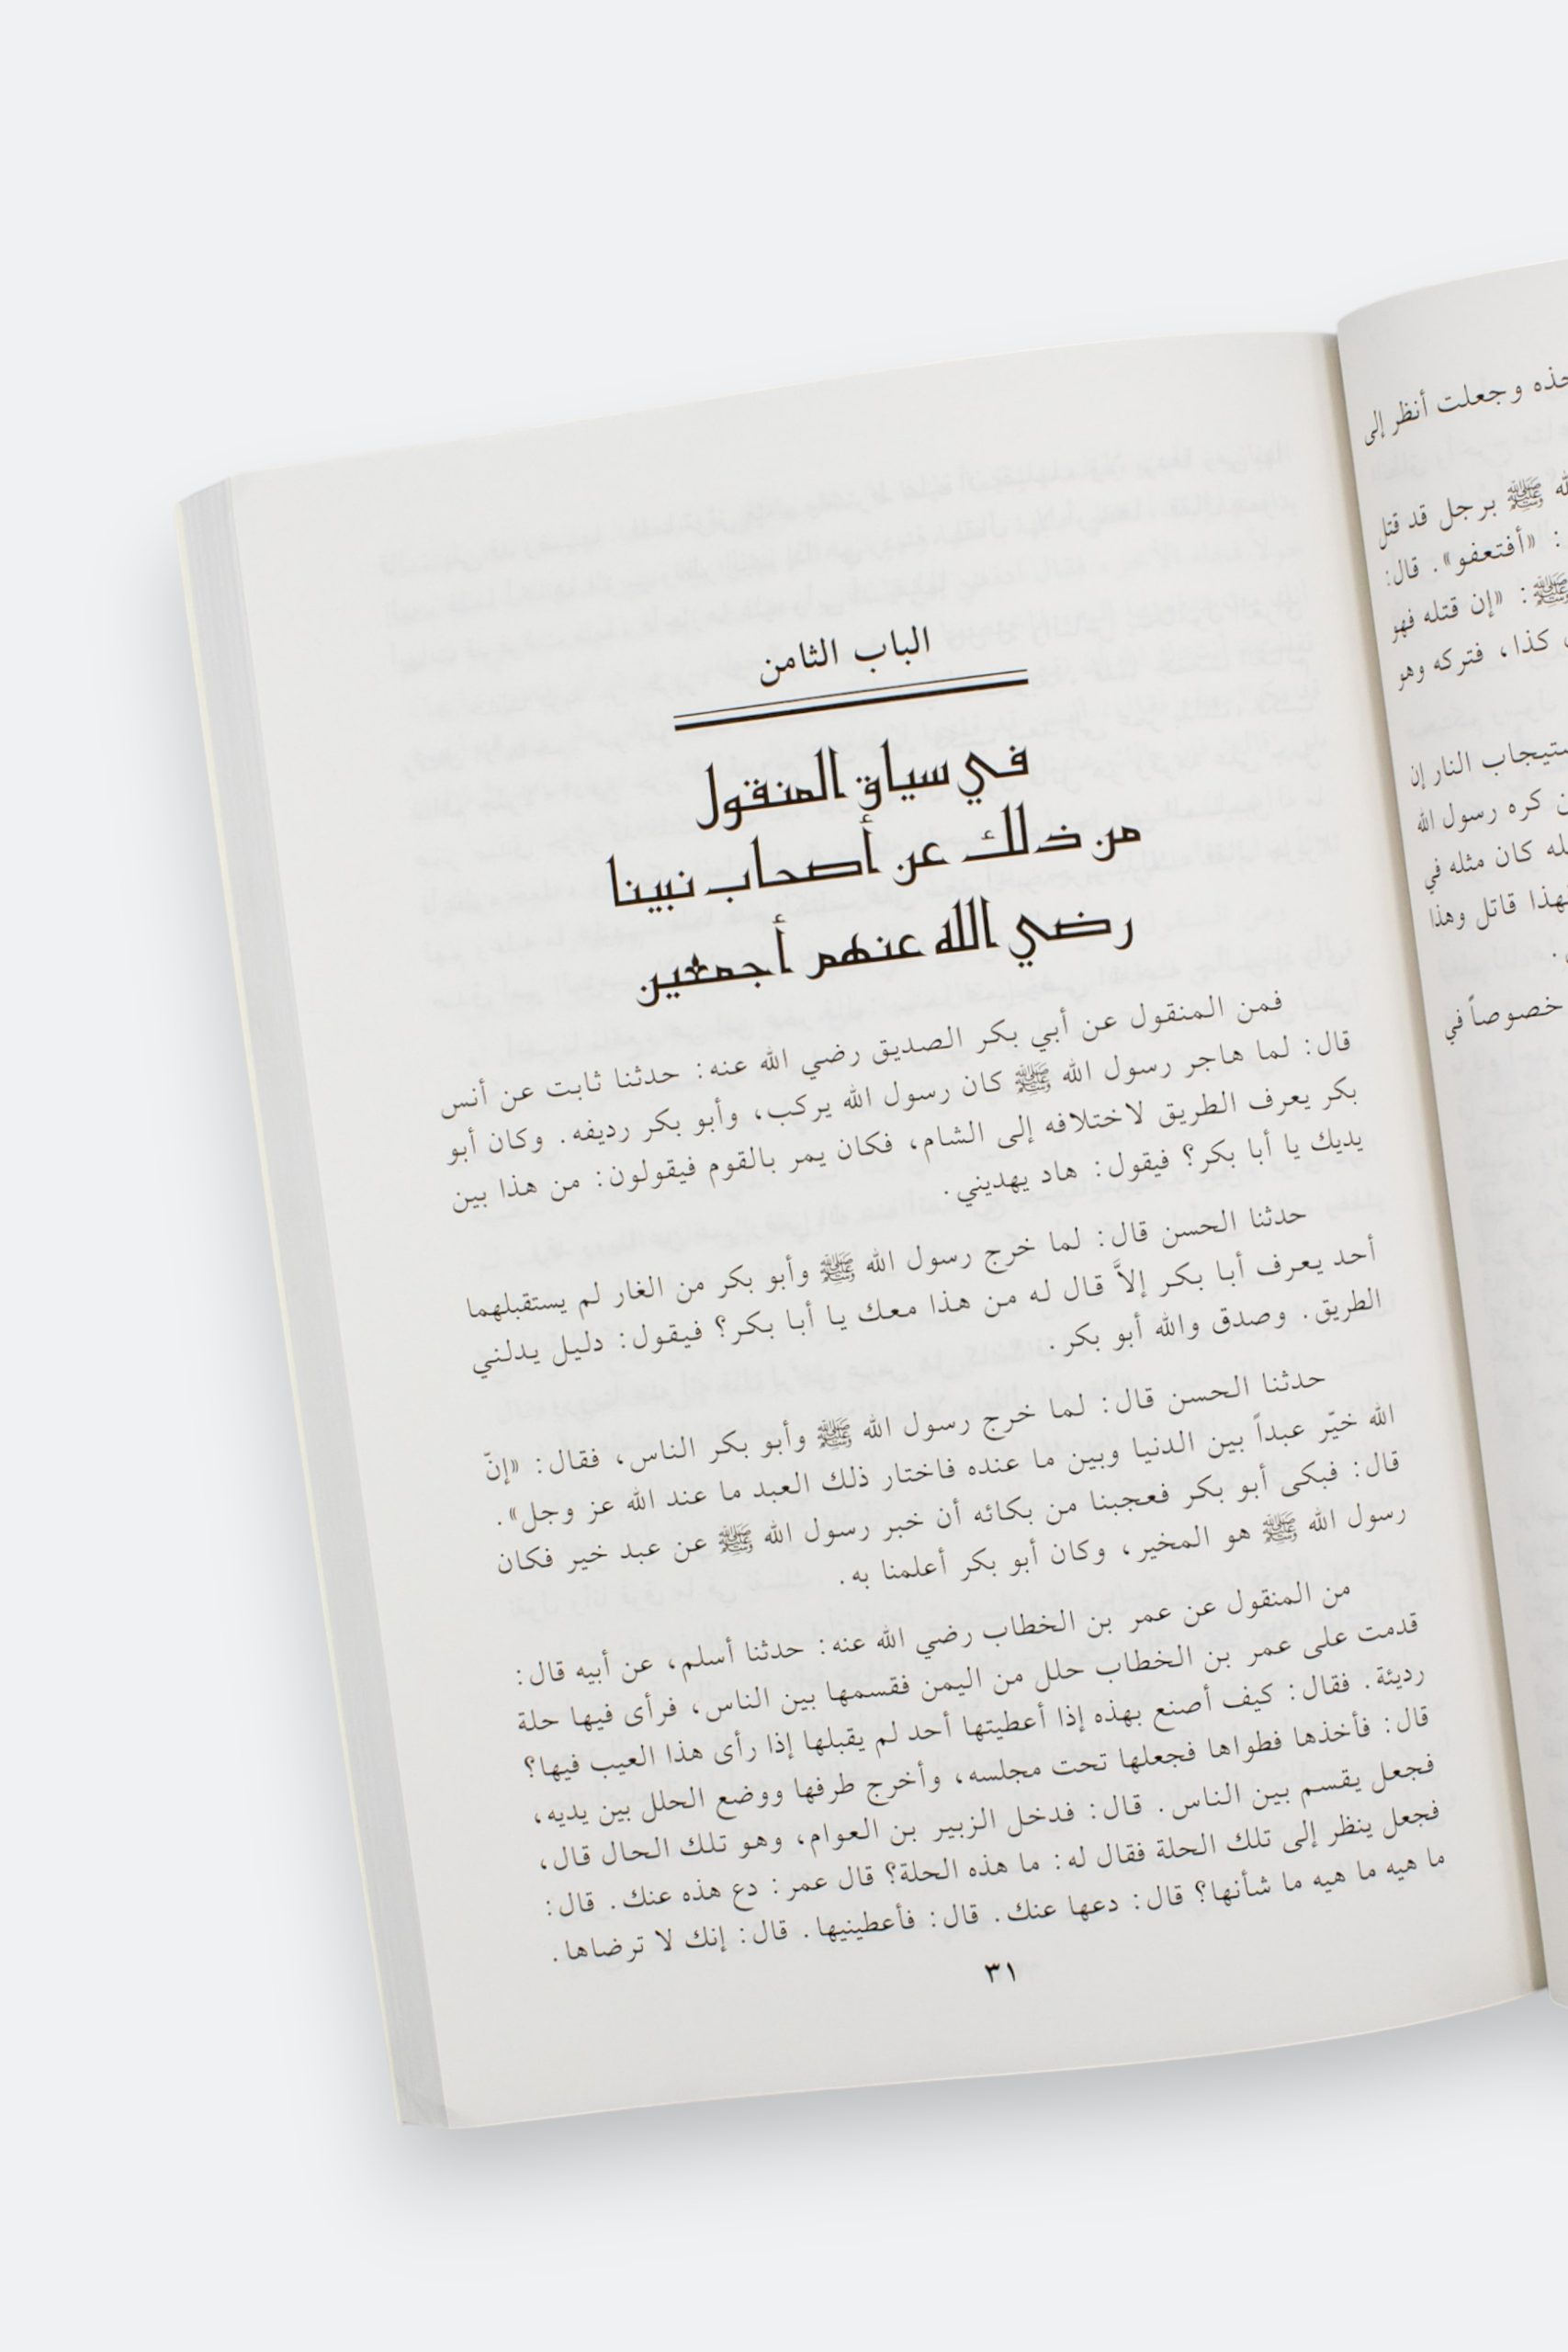 الباب الثامن
في سياق المنقول
من ذلك عن أصحاب نبينا
رضي الله عنهم أجمعين
فمن المنقول عن أبي بكر الصديق رضي الله عنه: حدثنا ثابت عن أنس
قال: لما هاجر رسول الله ﷺ كان رسول الله يركب، وأبو بكر رديفه. وكان أبو
بكر يعرف الطريق لاختلافه إلى الشام، فكان يمر بالقوم فيقولون: من هذا بين
يديك يا أبا بكر؟ فيقول: هاد يهديني.
حدثنا الحسن قال: لما خرج رسول الله ﷺ وأبو بكر من الغار لم يستقبلهما
أحد يعرف أبا بكر إلاَّ قال له من هذا معك يا أبا بكر؟ فيقول: دليل يدلني
الطريق. وصدق والله أبو بكر.
حدثنا الحسن قال: لما خرج رسول الله ﷺ وأبو بكر الناس، فقال: «إنّ
الله خيّر عبداً بين الدنيا وبين ما عنده فاختار ذلك العبد ما عند الله عز وجل».
قال: فبكى أبو بكر فعجبنا من بكائه أن خبر رسول الله ﷺ عن عبد خير فكان
رسول الله ﷺ هو المخير، وكان أبو بكر أعلمنا به.
من المنقول عن عمر بن الخطاب رضي الله عنه: حدثنا أسلم، عن أبيه قال:
قدمت على عمر بن الخطاب حلل من اليمن فقسمها بين الناس، فرأى فيها حلة
رديئة. فقال: كيف أصنع بهذه إذا أعطيتها أحد لم يقبلها إذا رأى هذا العيب فيها؟
قال: فأخذها فطواها فجعلها تحت مجلسه، وأخرج طرفها ووضع الحلل بين يديه،
فجعل يقسم بين الناس. قال: فدخل الزبير بن العوام، وهو تلك الحال قال،
فجعل ينظر إلى تلك الحلة فقال له: ما هذه الحلة؟ قال عمر: دع هذه عنك. قال:
ما هيه ما هيه ما شأنها؟ قال: دعها عنك. قال: فأعطينيها. قال: إنك لا ترضاها.
٣١
وجعلت أنظر إلى
ﷺ برجل قد قتل
: «أفتعفو». قال:
ﷺ: «إن قتله فهو
كذا، فتركه وهو
النار إن
كره رسول الله
كان مثله في
قاتل وهذا
خصوصاً في